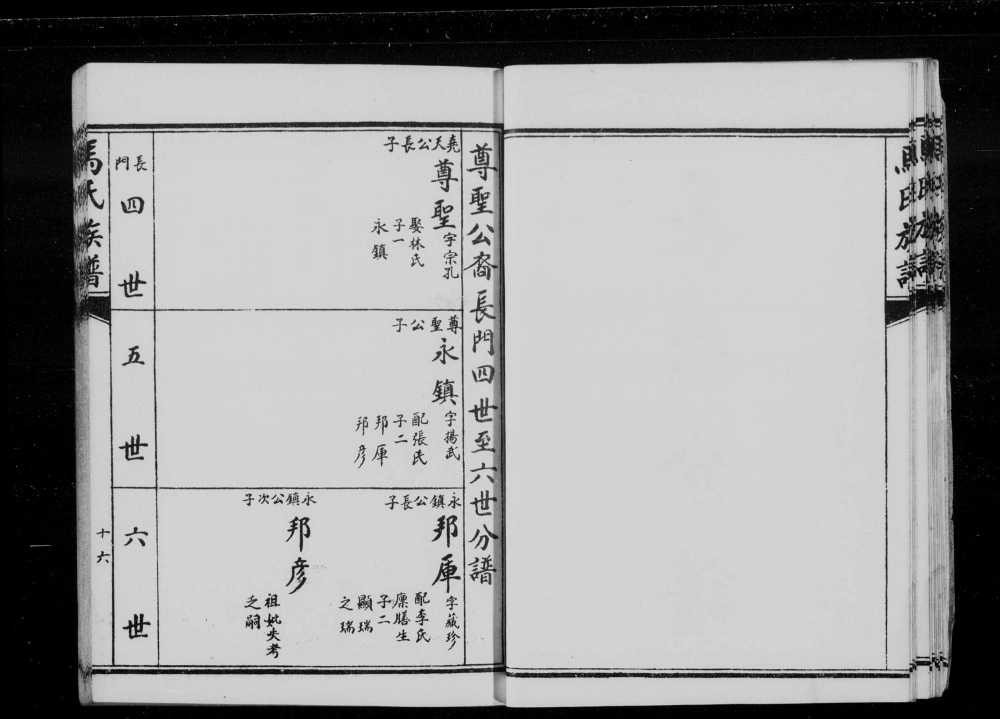 尊聖公裔長門四世至六世分譜
長門
四世
堯天公長子
尊聖
字宗孔
娶林氏
子一
永鎮
五世
尊聖公子
永鎮
字揚武
配張氏
子二
邦庫
邦彦
六世
永鎮公長子
邦庫
字藏珍
配李氏
廪膳生
子二
顯瑞
之瑞
永鎮公次子
邦彦
祖妣失考
乏嗣
馬氏族譜
十六